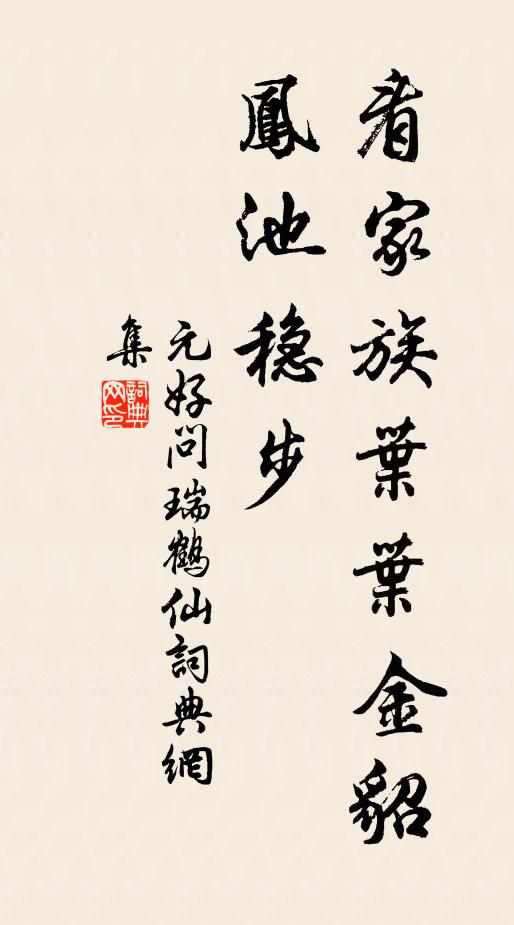 看家族葉葉金貂
鳳池穩步
元好問瑞鶴仙詞典網
集
詞典
网印